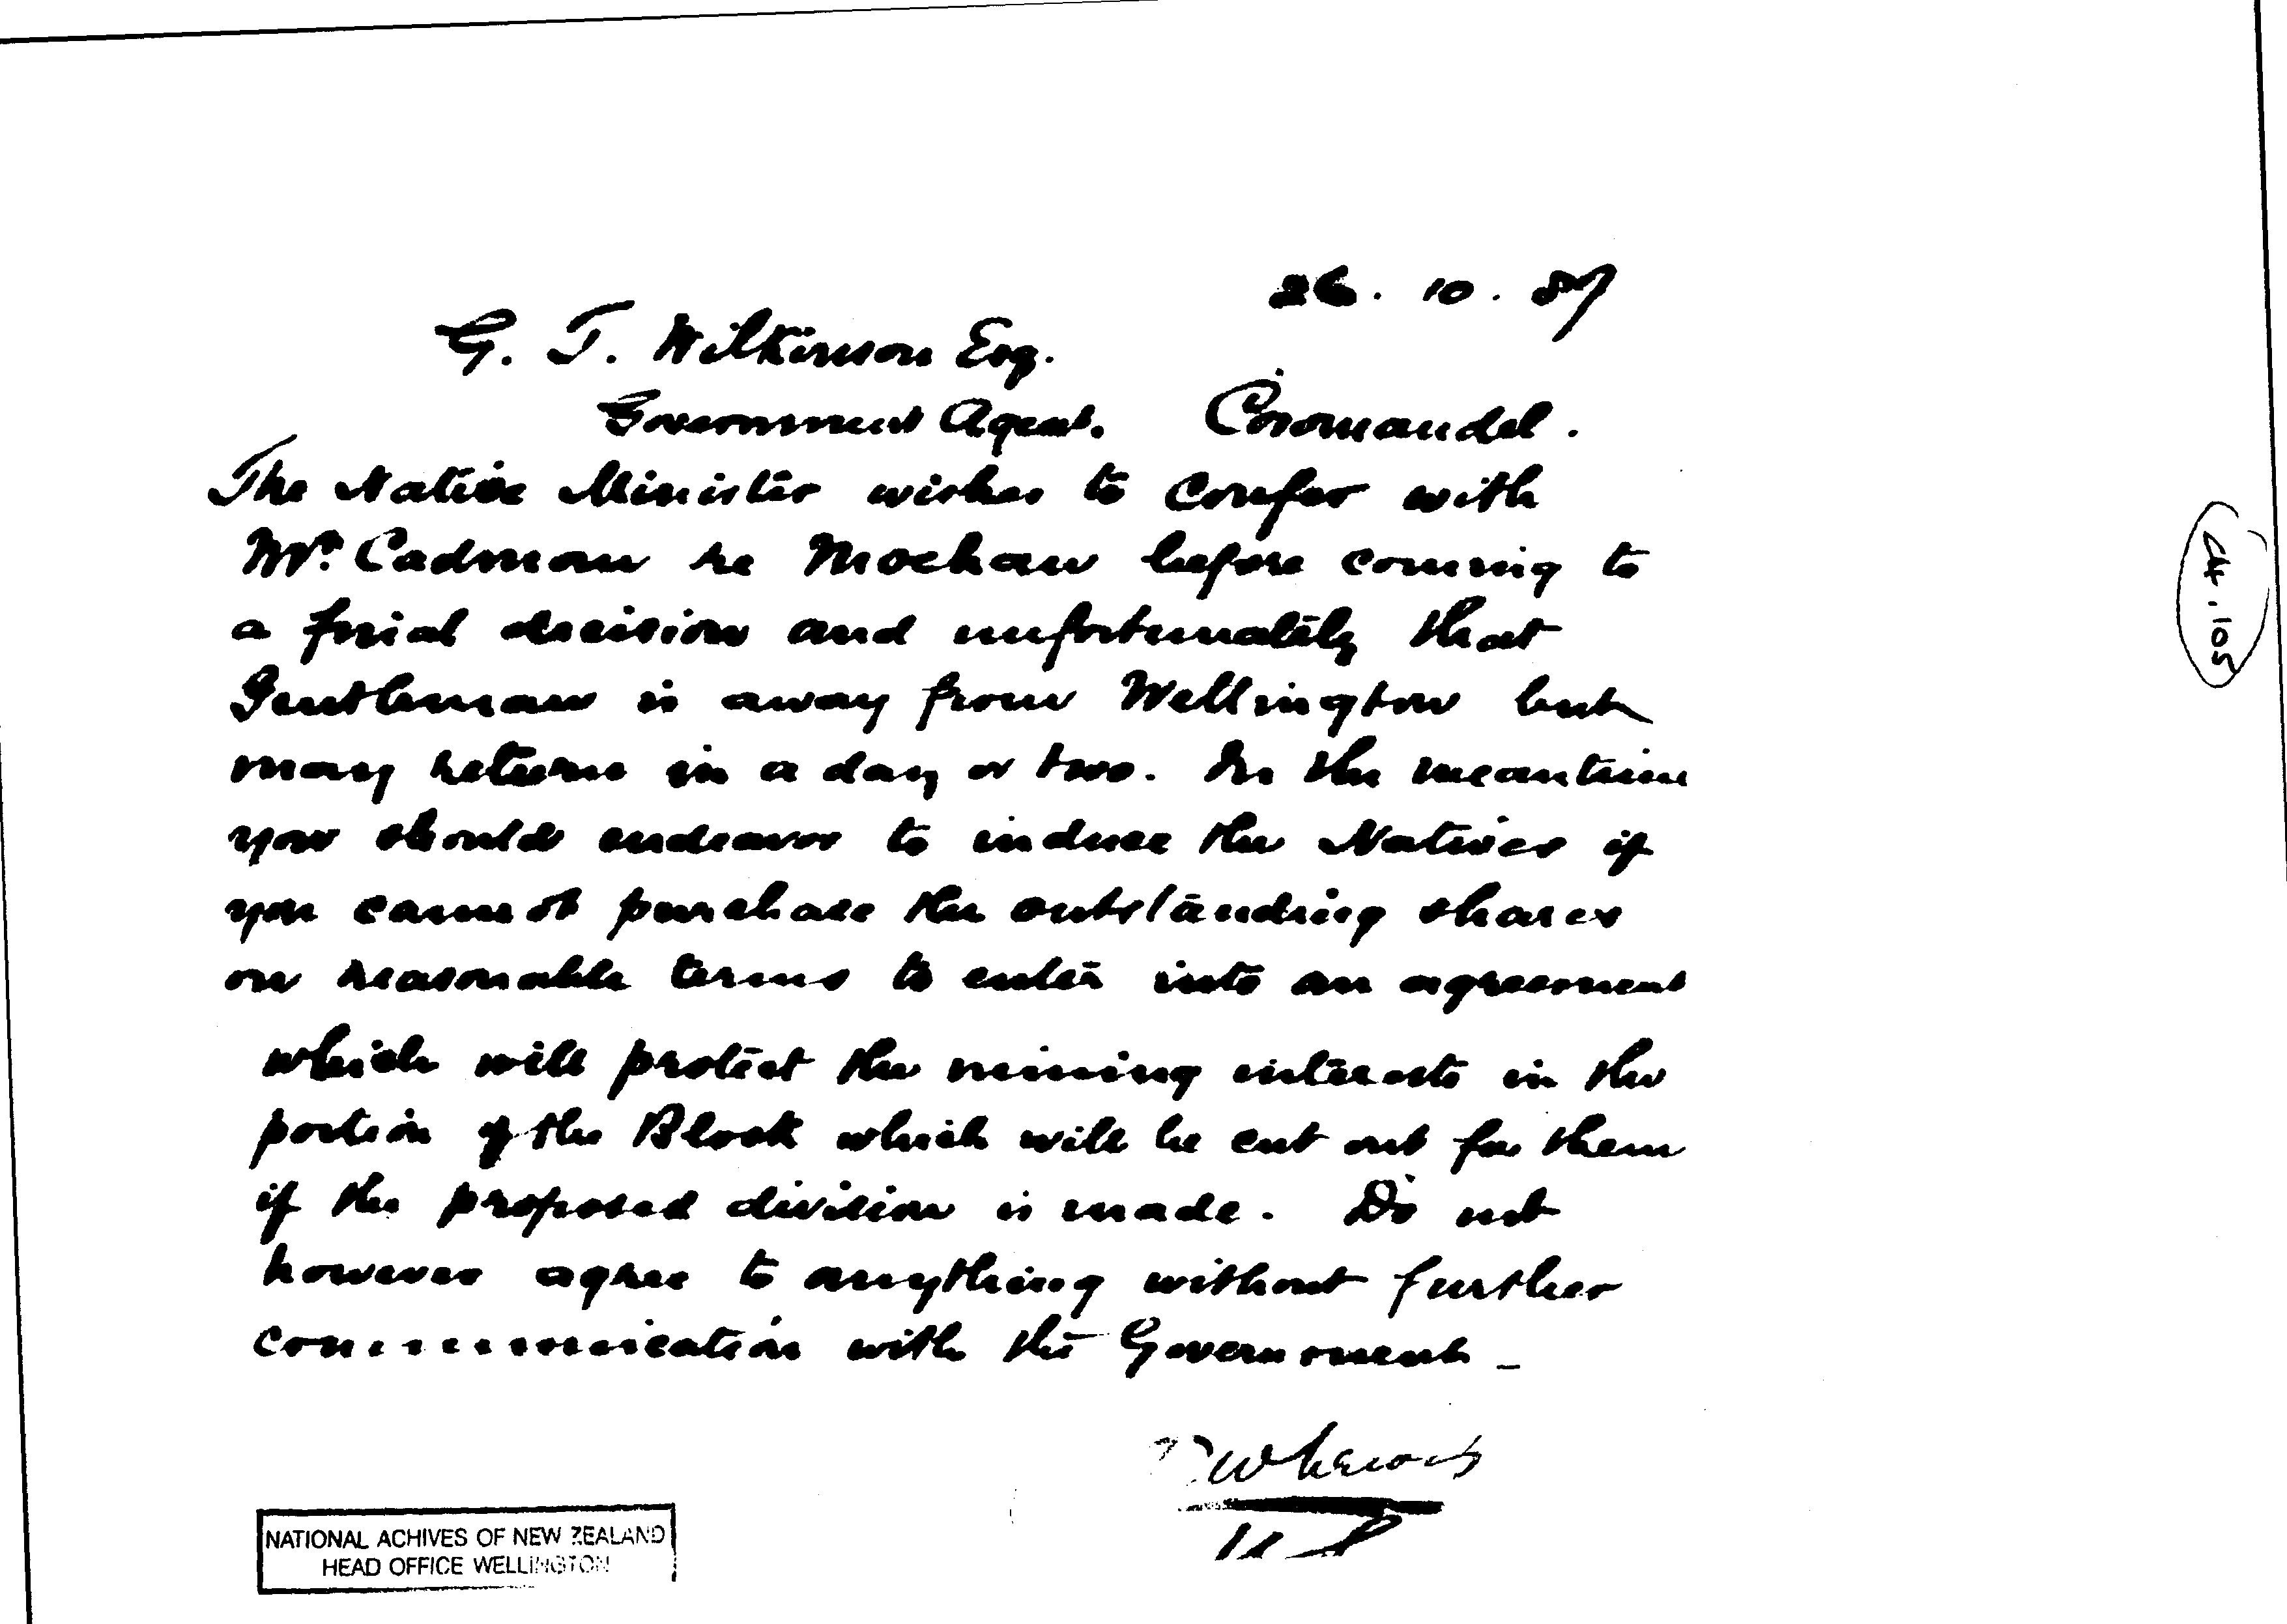 26. 10. 87
G. T. Wilkinson Esq.
Government Agent. Coromandel.
The Native Minister wishes to confer with
Mr. Cadman re Moehau before coming to
a final decision and unfortunately that
Gentleman is away from Wellington but
may return in a day or two. In the meantime
you should endeavor to induce the Natives if
you cannot purchase the outstanding shares
on reasonable terms to enter into an agreement
which will protect the mining interests in the
portion of the Block which will be cut out for them
if the proposed division is made. Do not
however agree to anything without further
communication with the Government _
TW Lewis
US
C4.105
NATIONAL ACHIVES OF NEW ZEALAND
HEAD OFFICE WELLINGTON